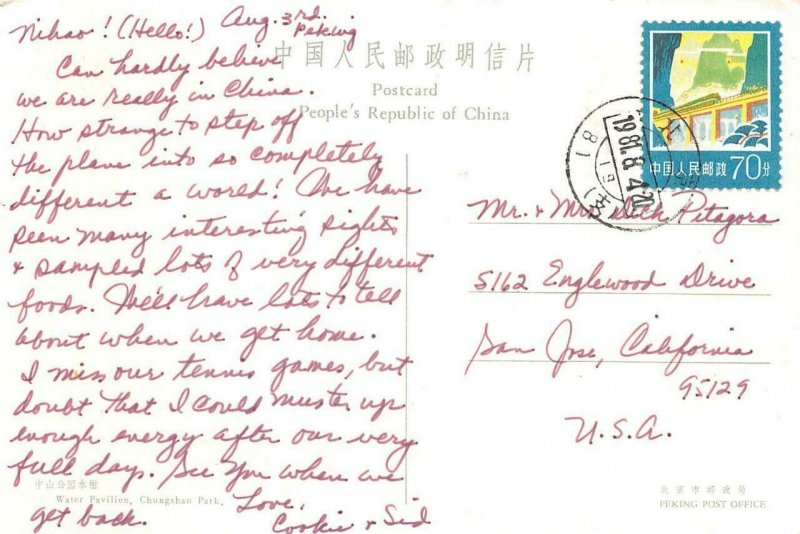 Nihao! (Hello!) Aug. 3rd.
Peking
Can hardly believe
we are really in China.
How strange to step off
the plane into so completely
different a world! We have
seen many interesting sights
& sampled lots of very different
foods. We'll have lots to tell
about when we get home.
I miss our tennis games, but
doubt that I could muster up
enough energy after our very
full days. See you when we
get back. Love,
Cookie & Sid
中国人民邮政明信片
Postcard
People's Republic of China
中山公园水榭
Water Pavilion, Chungshan Park.
中国人民邮政 70分
1981.8.4.20
Mr. & Mrs. Dick Pitagora
5162 Englewood Drive
San Jose, California
95129
U.S.A.
北京市邮政局
PEKING POST OFFICE